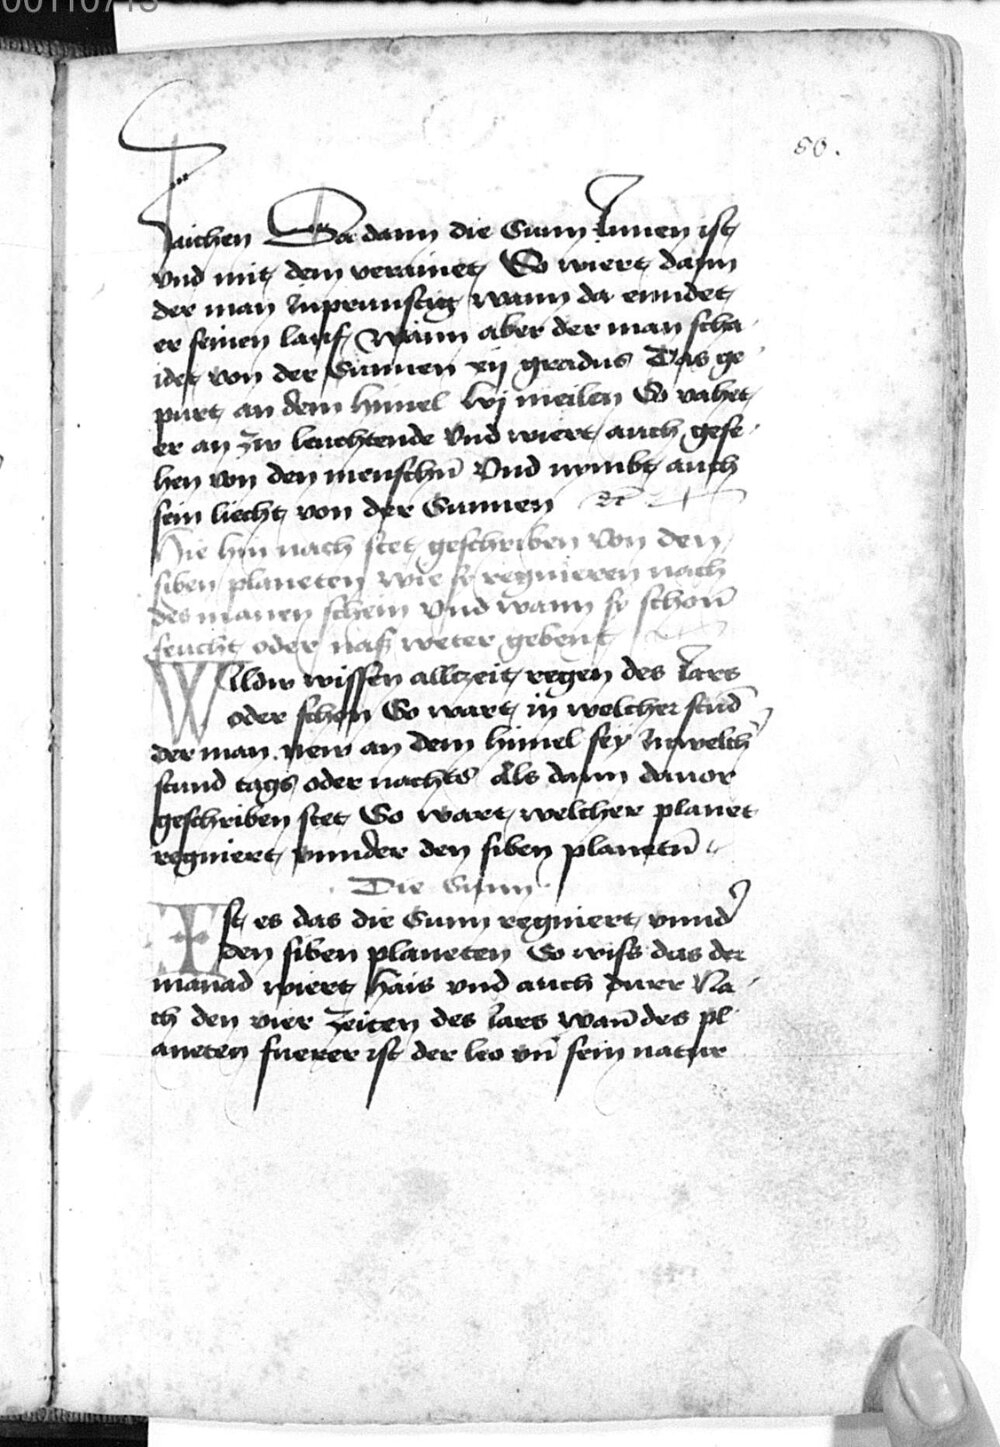 50.
Zaichen Da dann die Sunn Innen ist
vnd mit dem verainet So wiert dann
der man Inprunstig wann da enndet
er seinen lauf Wann aber der man scha
idet von der Sunnen xij gradus Das ge
purt an dem himel lvj meilen So vahet
er an zw leuchtende Vnd wiert auch gese
hen von den menschn̄ Vnd nymbt auch
sein liecht von der Sunnen etc̄
Hie hin nach stet geschriben Von den
siben planeten wie sy regnieren nach
des manen schein Vnd wann sy schon̄
feucht oder naß weter gebent
Wildw wissen allczeit regen des Iars
oder schon So wart in welcher stūd
der man new an dem himel sey In welch̄
stund tags oder nachts Als dann dauor
geschriben stet So wart welcher planet
regniert vnnder den siben planetn̄
Die Sunn
Ist es das die Sunn regniert vnnd̄
den siben planeten So wiss das der
manad wiert hais vnd auch durr Na
ch den vier zeiten des Iars wan̄ des pl
aneten fuerer ist der leo vn̄ sein natur